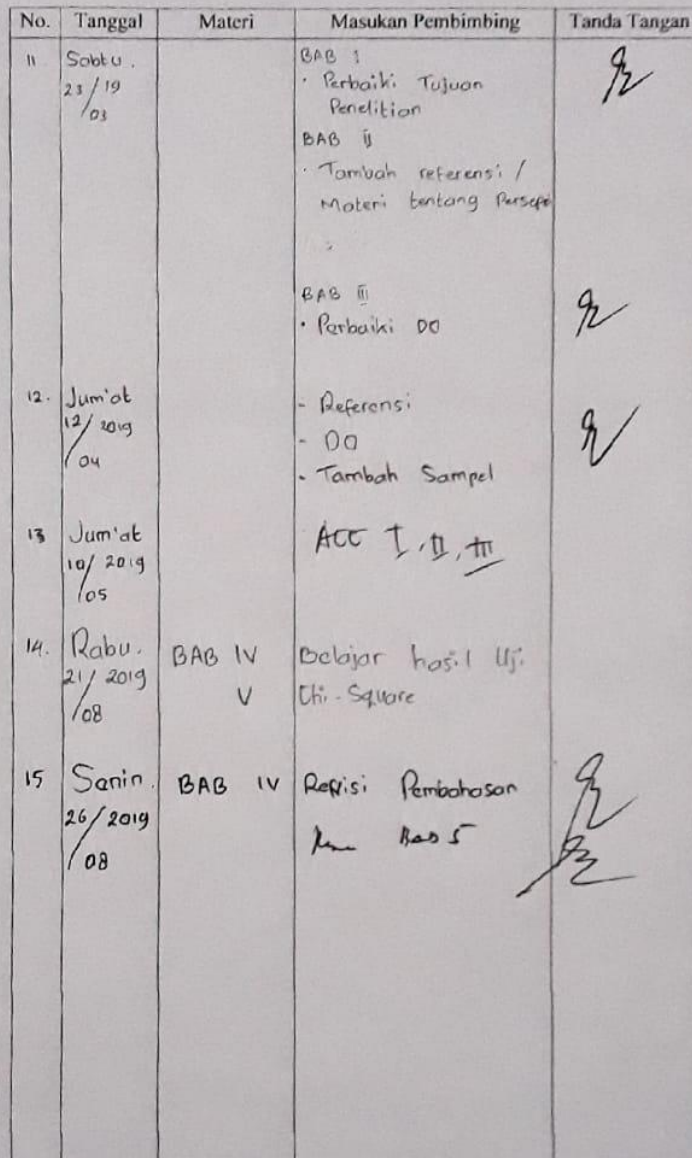 No. Tanggal Materi Masukan Pembimbing Tanda Tangan
11 Sabtu.
23/19
/03
BAB I
• Perbaiki Tujuan
Penelitian
BAB II
• Tambah referensi /
Materi tentang
BAB III
• Perbaiki DO
12. Jum'at
12/2019
/04
- Referensi
- DO
- Tambah Sampel
13 Jum'at
10/2019
/05
ACC I, II, III
14. Rabu.
21/2019
/08
BAB IV
V
Belajar hasil Uji
Chi-Square
15 Senin.
26/2019
/08
BAB IV
Revisi Pembahasan
Bab 5